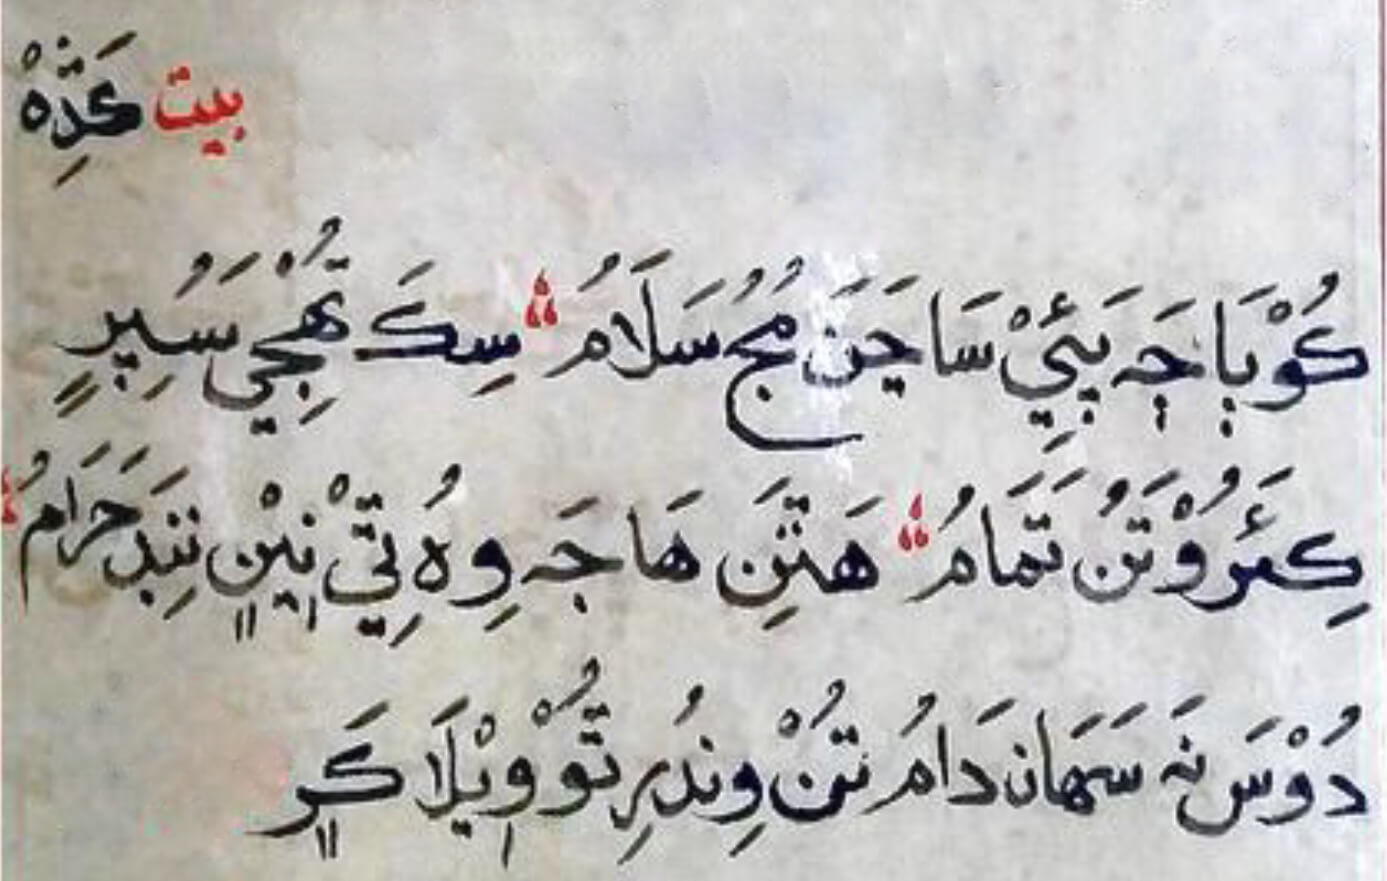 بيت عَدِهْ
كُوْ ٻَاجَہ پَئِيْ سَاجَنَ مُجُ سَلَامُ ؞ سِکَ تُهْجِيَ سُپِرِ
کِئَرُوْ تَنُ تَمَامُ ؞ هَتَنِ هَاجَہ وِهُ ٿِيْ نِيْنِ نِنڊَ حَرَامُ ؞
دُوْسَ نَہ سَهَان دَامُ تُنْ وِندُرِ تُوْ وِيْلَا ڪَرِ